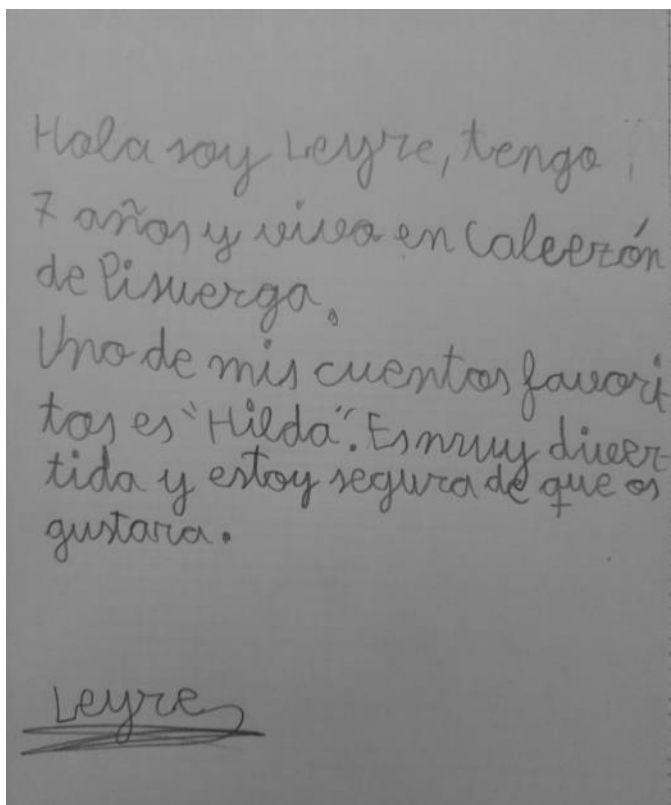 Hola soy Leyre, tengo
7 años y vivo en Caleerón
de Pisuerga.
Uno de mis cuentos favori
tos es "Hilda". Es muy diver-
tida y estoy segura de que os
gustara.
Leyre